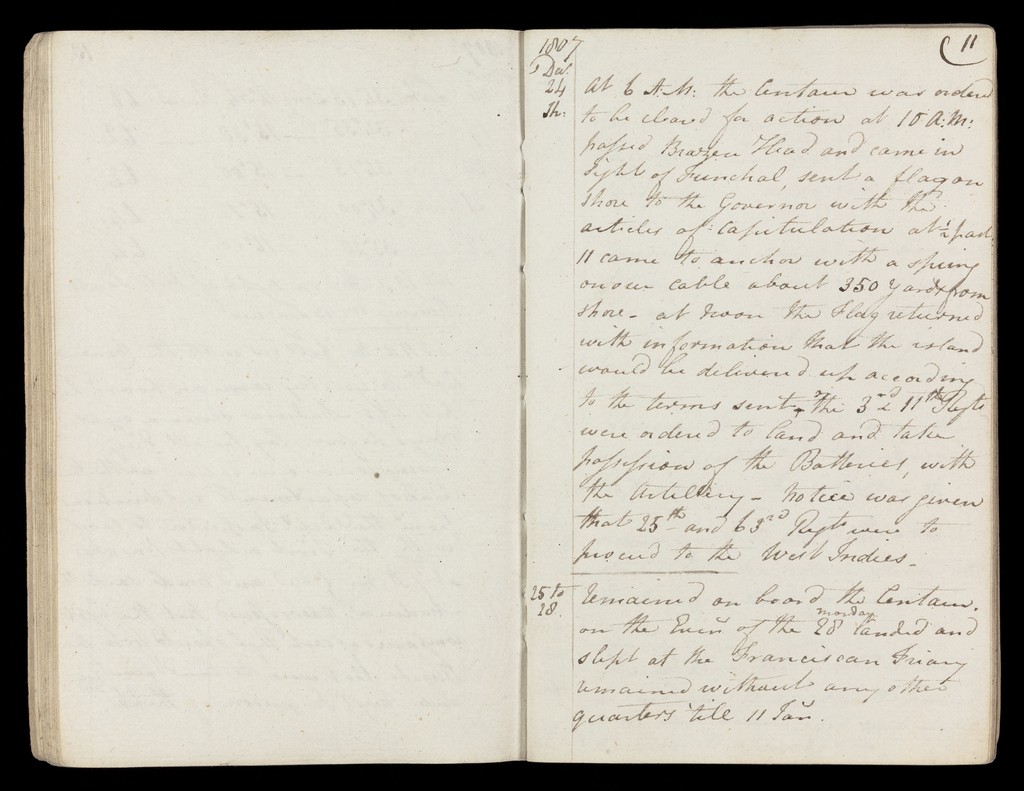 1807
11
Decr.
24
Th:
At 6 A:M: the Centaur was ordered
to be cleared for action at 10 A:M:
passed Brazen Head and came in
sight of Funchal, sent a flag on
shore to the Governor with the
articles of capitulation at ½ past
11 came to anchor with a spring
on our cable about 350 yards from
shore - at Noon the Flag returned
with information that the island
would be delivered up according
to the terms sent, the 3rd & 11th Regts
were ordered to land and take
possession of the Batteries, with
the Artillery - Notice was given
that 25th and 63rd Regts were to
proceed to the West Indies -
25 to
28
Remained on board the Centaur.
monday
on the Eveng of the 28 landed and
slept at the Franciscan Friary
remained without any other
quarters 'till 11 Jany.